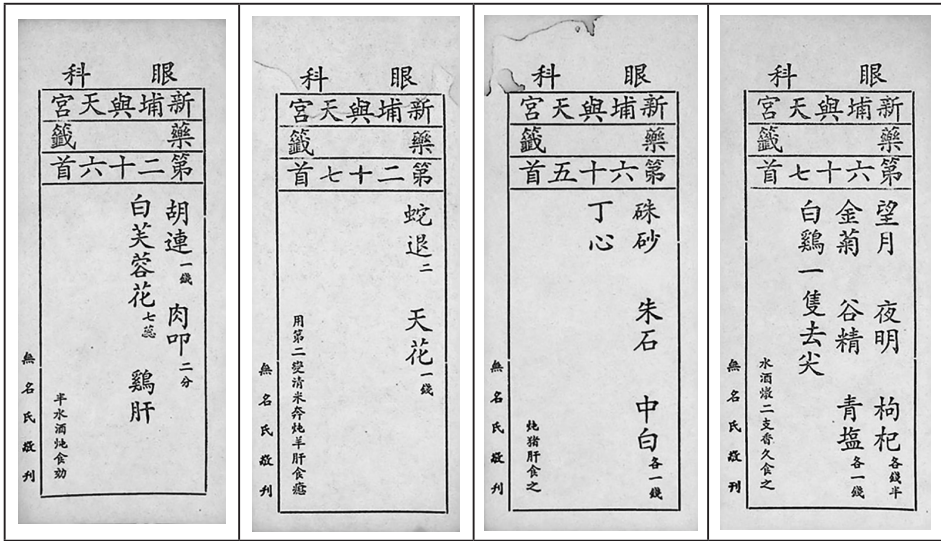 眼科
新埔與天宮
藥籤
第二十六首
胡連一錢 肉叩二分
白芙蓉花七蕊 鷄肝
半水酒炖食効
無名氏敬刊
眼科
新埔與天宮
藥籤
第二十七首
蛇退二 天花一錢
用第二变清米奔炖羊肝食癒
無名氏敬刊
眼科
新埔與天宮
藥籤
第六十五首
硃砂 朱石 中白各一錢
丁心
炖猪肝食之
無名氏敬刊
眼科
新埔與天宮
藥籤
第六十七首
望月 夜明 枸杞各錢半
金菊 谷精 青塩各一錢
白鷄一隻去尖
水酒燉二支香久食之
無名氏敬刊